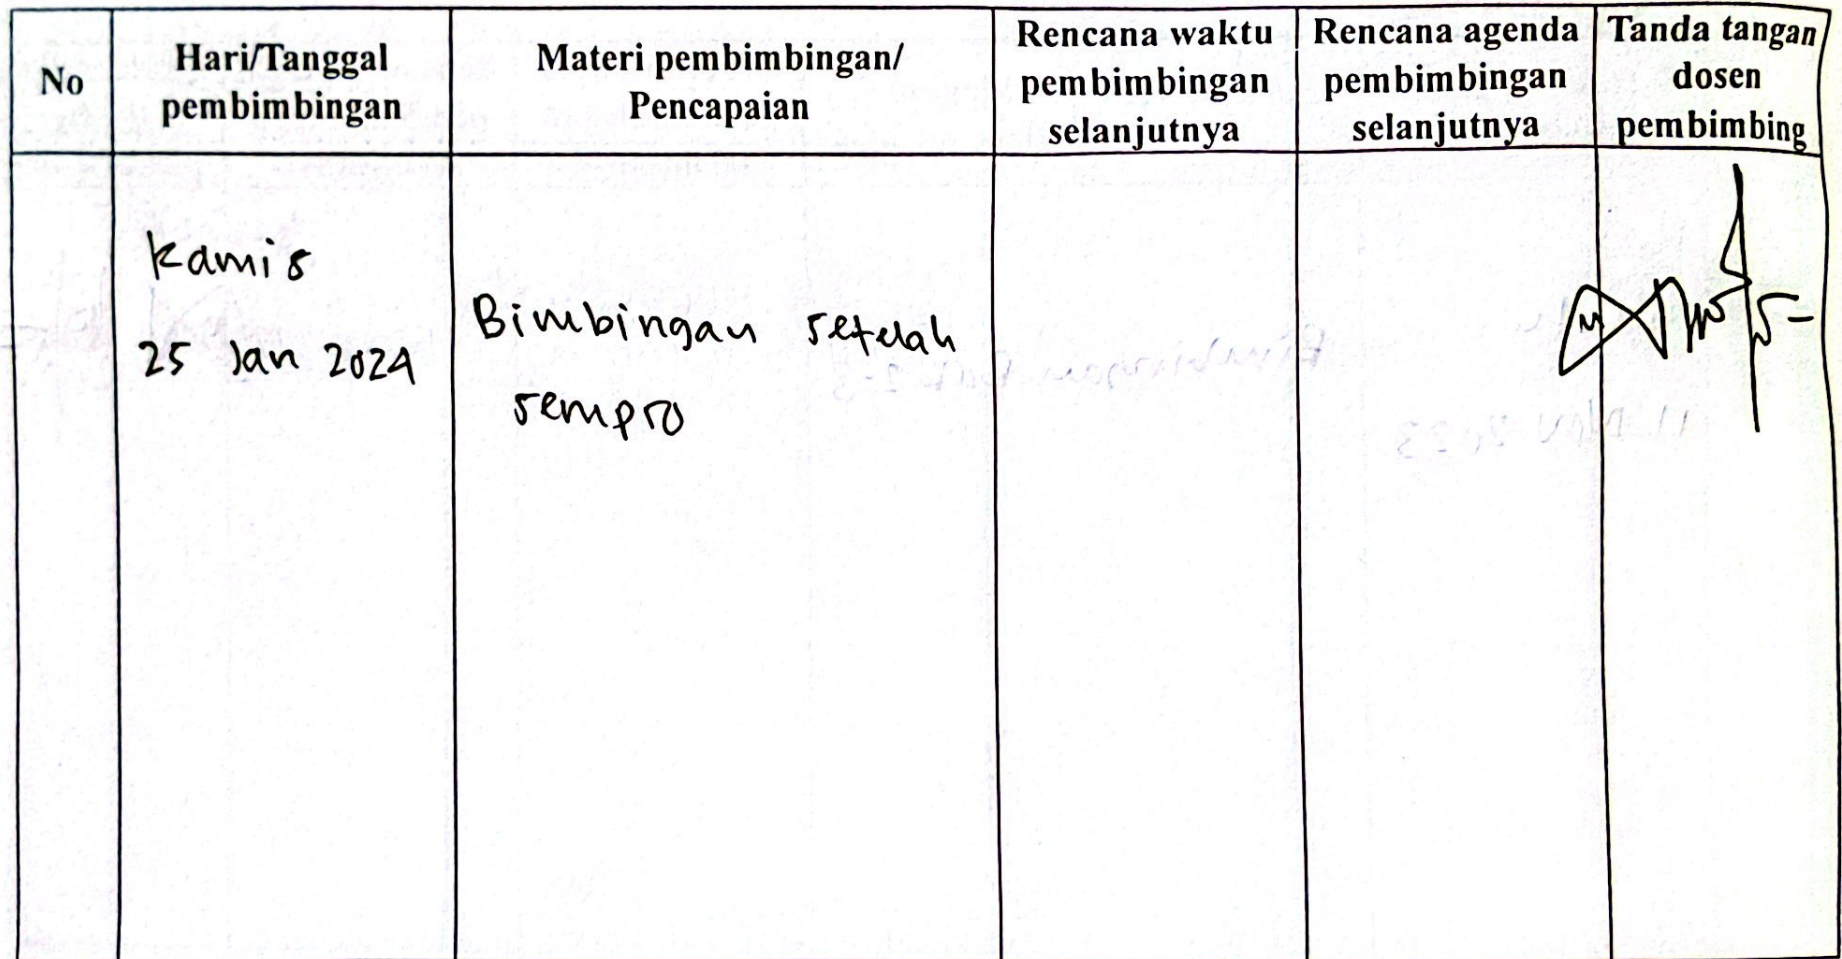 No
Hari/Tanggal
pembimbingan
Materi pembimbingan/
Pencapaian
Rencana waktu
pembimbingan
selanjutnya
Rencana agenda
pembimbingan
selanjutnya
Tanda tangan
dosen
pembimbing
Kamis
25 Jan 2024
Bimbingan setelah
sempro